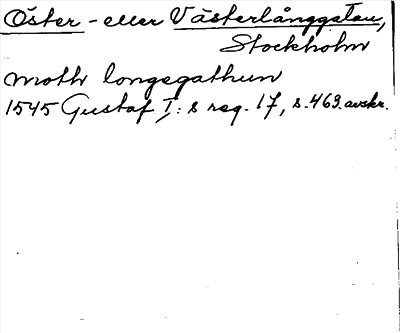 Öster- eller Västerlånggatan,
Stockholm
moth longegathun
1545 Gustaf I:s reg. 17, s. 463. avskr.